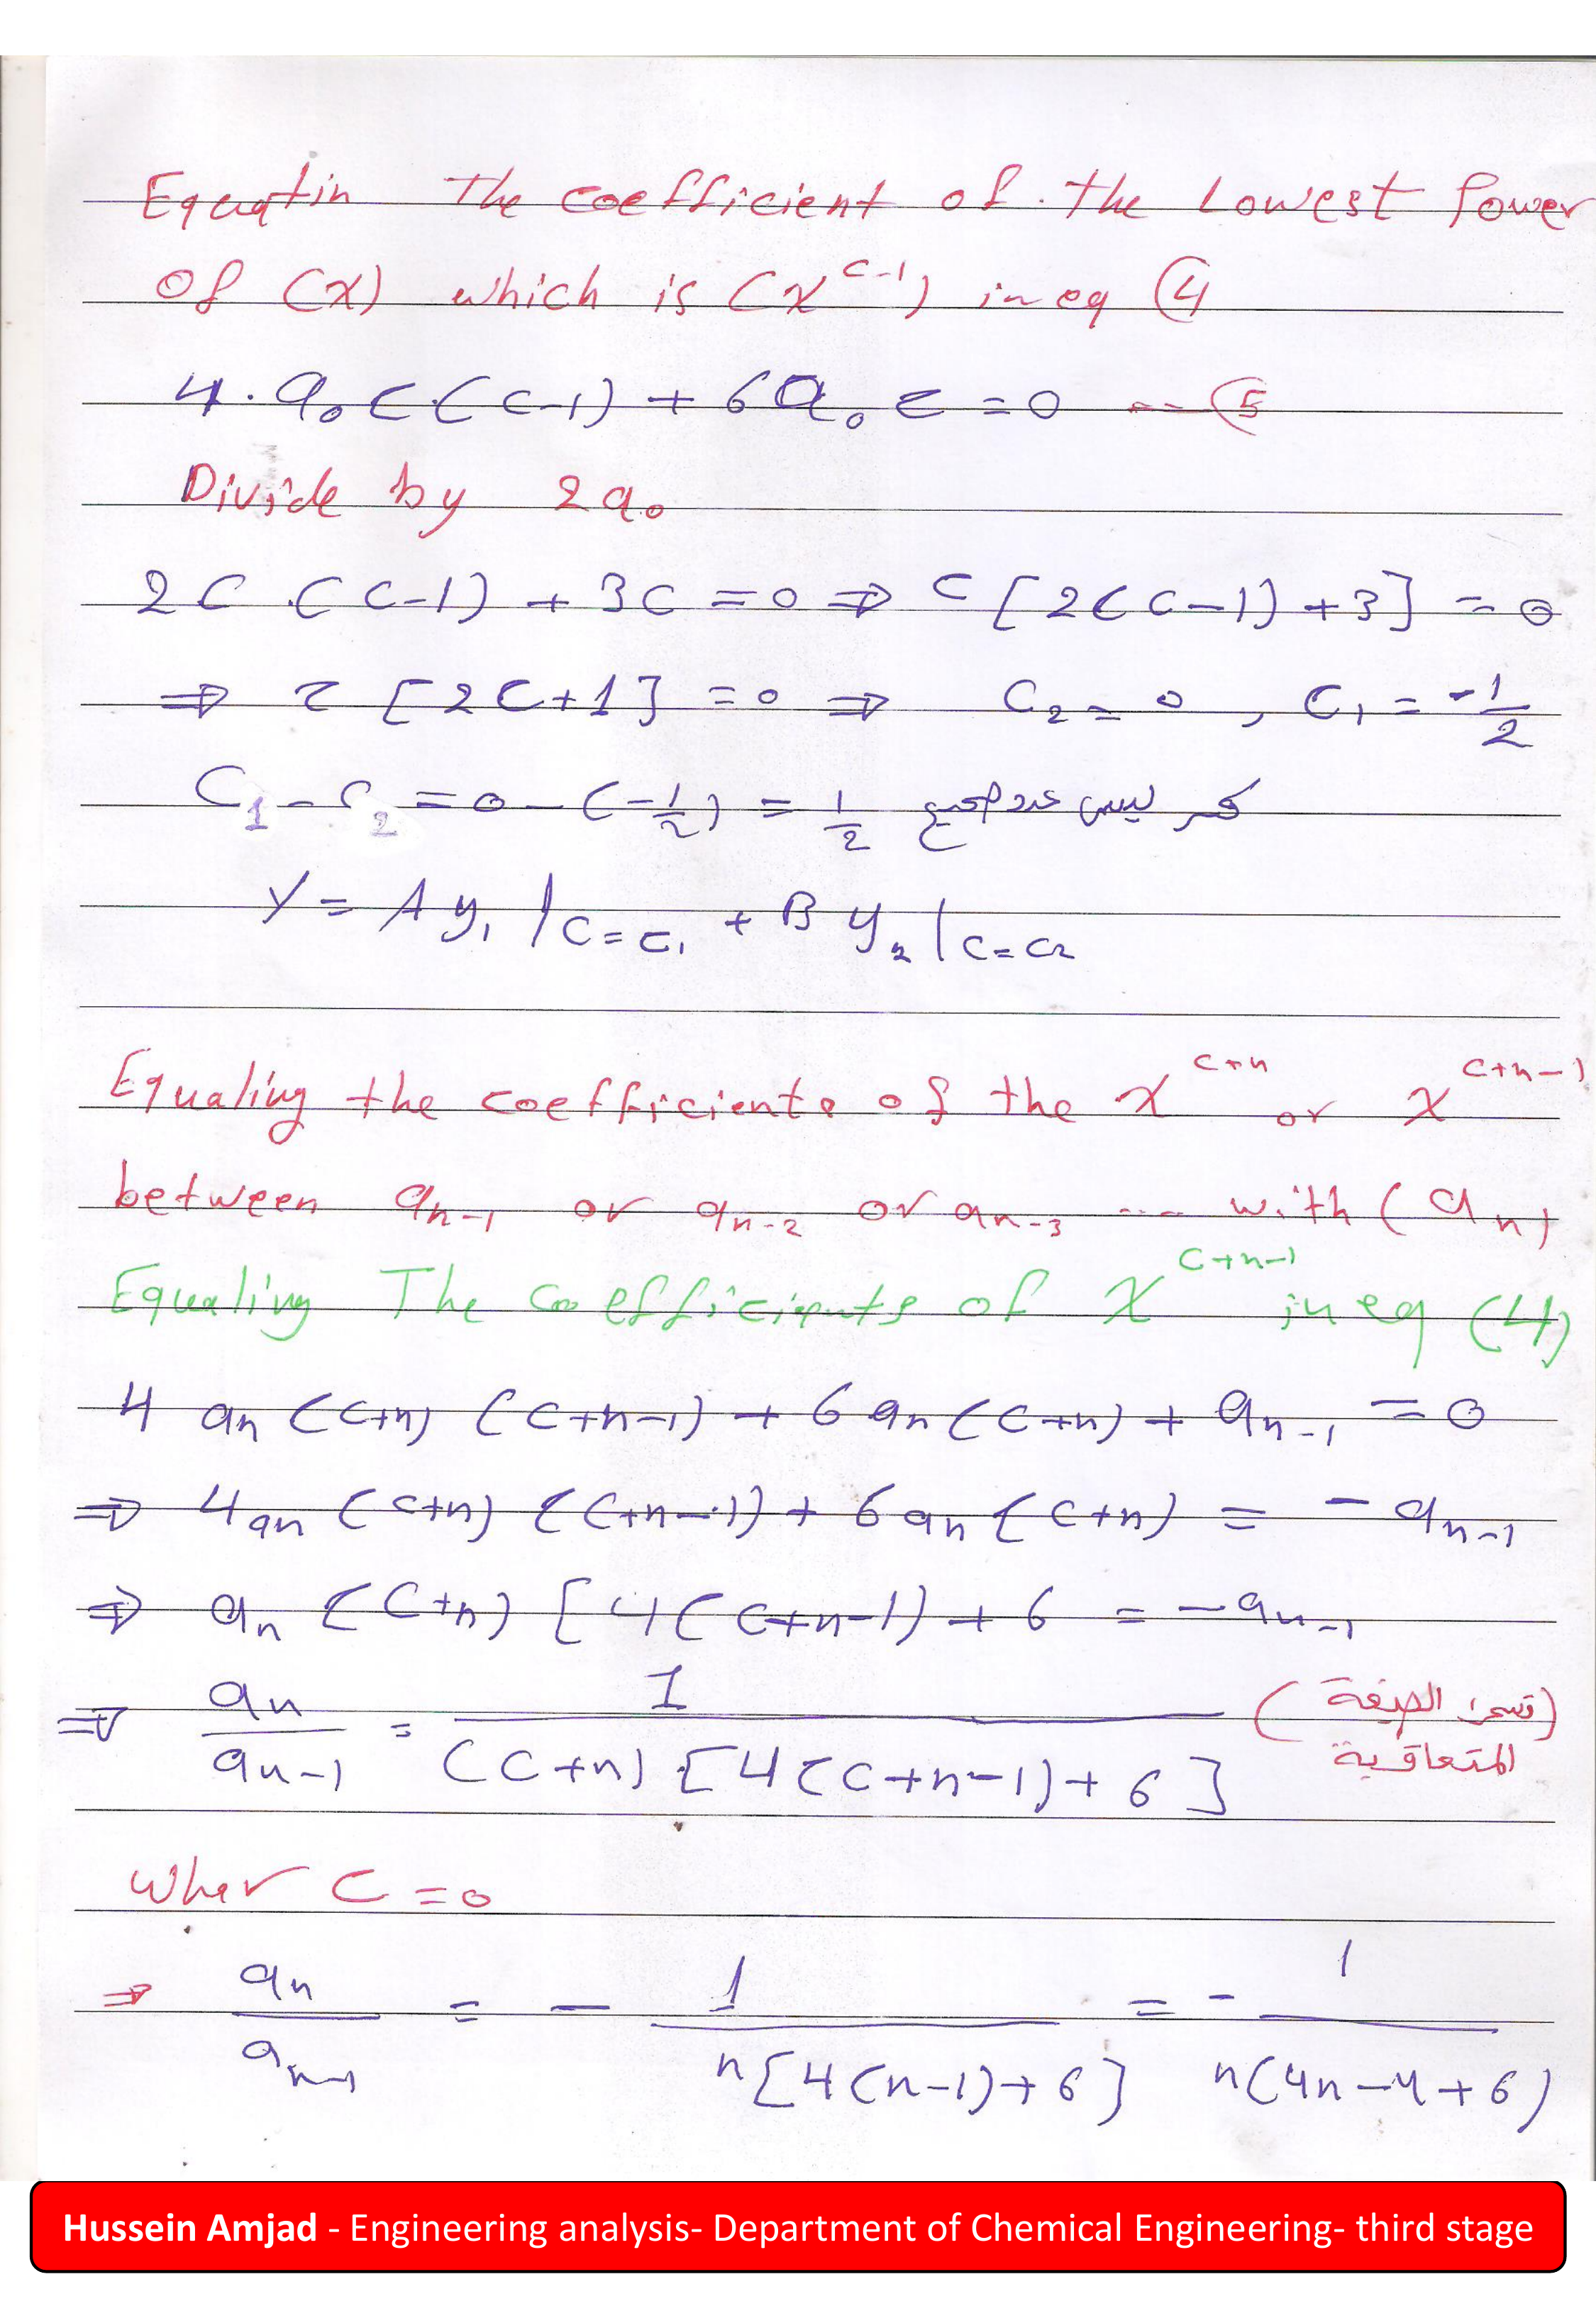 Equatin The coefficient of the Lowest Power
of (x) which is (x^{c-1}) in eq ④
4.a₀c(c-1) + 6a₀c = 0 --- ⑤
Divide by 2a₀
2c.(c-1) + 3c = 0 ⇒ c[2(c-1)+3] = 0
⇒ c[2c+1] = 0 ⇒ c₂ = 0, c₁ = -1/2
c₁ - c₂ = 0 - (-1/2) = 1/2 كسر ليس عدد صحيح
Y = A y₁ |c=c₁ + B y₂ |c=c₂
Equaling the coefficients of the x^{c+n} or x^{c+n-1}
between a_{n-1} or a_{n-2} or a_{n-3} ---- with (a_n)
Equaling The coefficients of x^{c+n-1} in eq (4)
4 a_n (c+n) (c+n-1) + 6 a_n (c+n) + a_{n-1} = 0
⇒ 4a_n (c+n) (c+n-1) + 6 a_n (c+n) = - a_{n-1}
⇒ a_n (c+n) [4(c+n-1) + 6 = - a_{n-1}
⇒ a_n / a_{n-1} = 1 / (c+n) [4(c+n-1) + 6] (تسمى الصيغة
المتعاقبة)
wher c = 0
⇒ a_n / a_{n-1} = - 1 / n[4(n-1)+6] = - 1 / n(4n-4+6)
Hussein Amjad - Engineering analysis- Department of Chemical Engineering- third stage